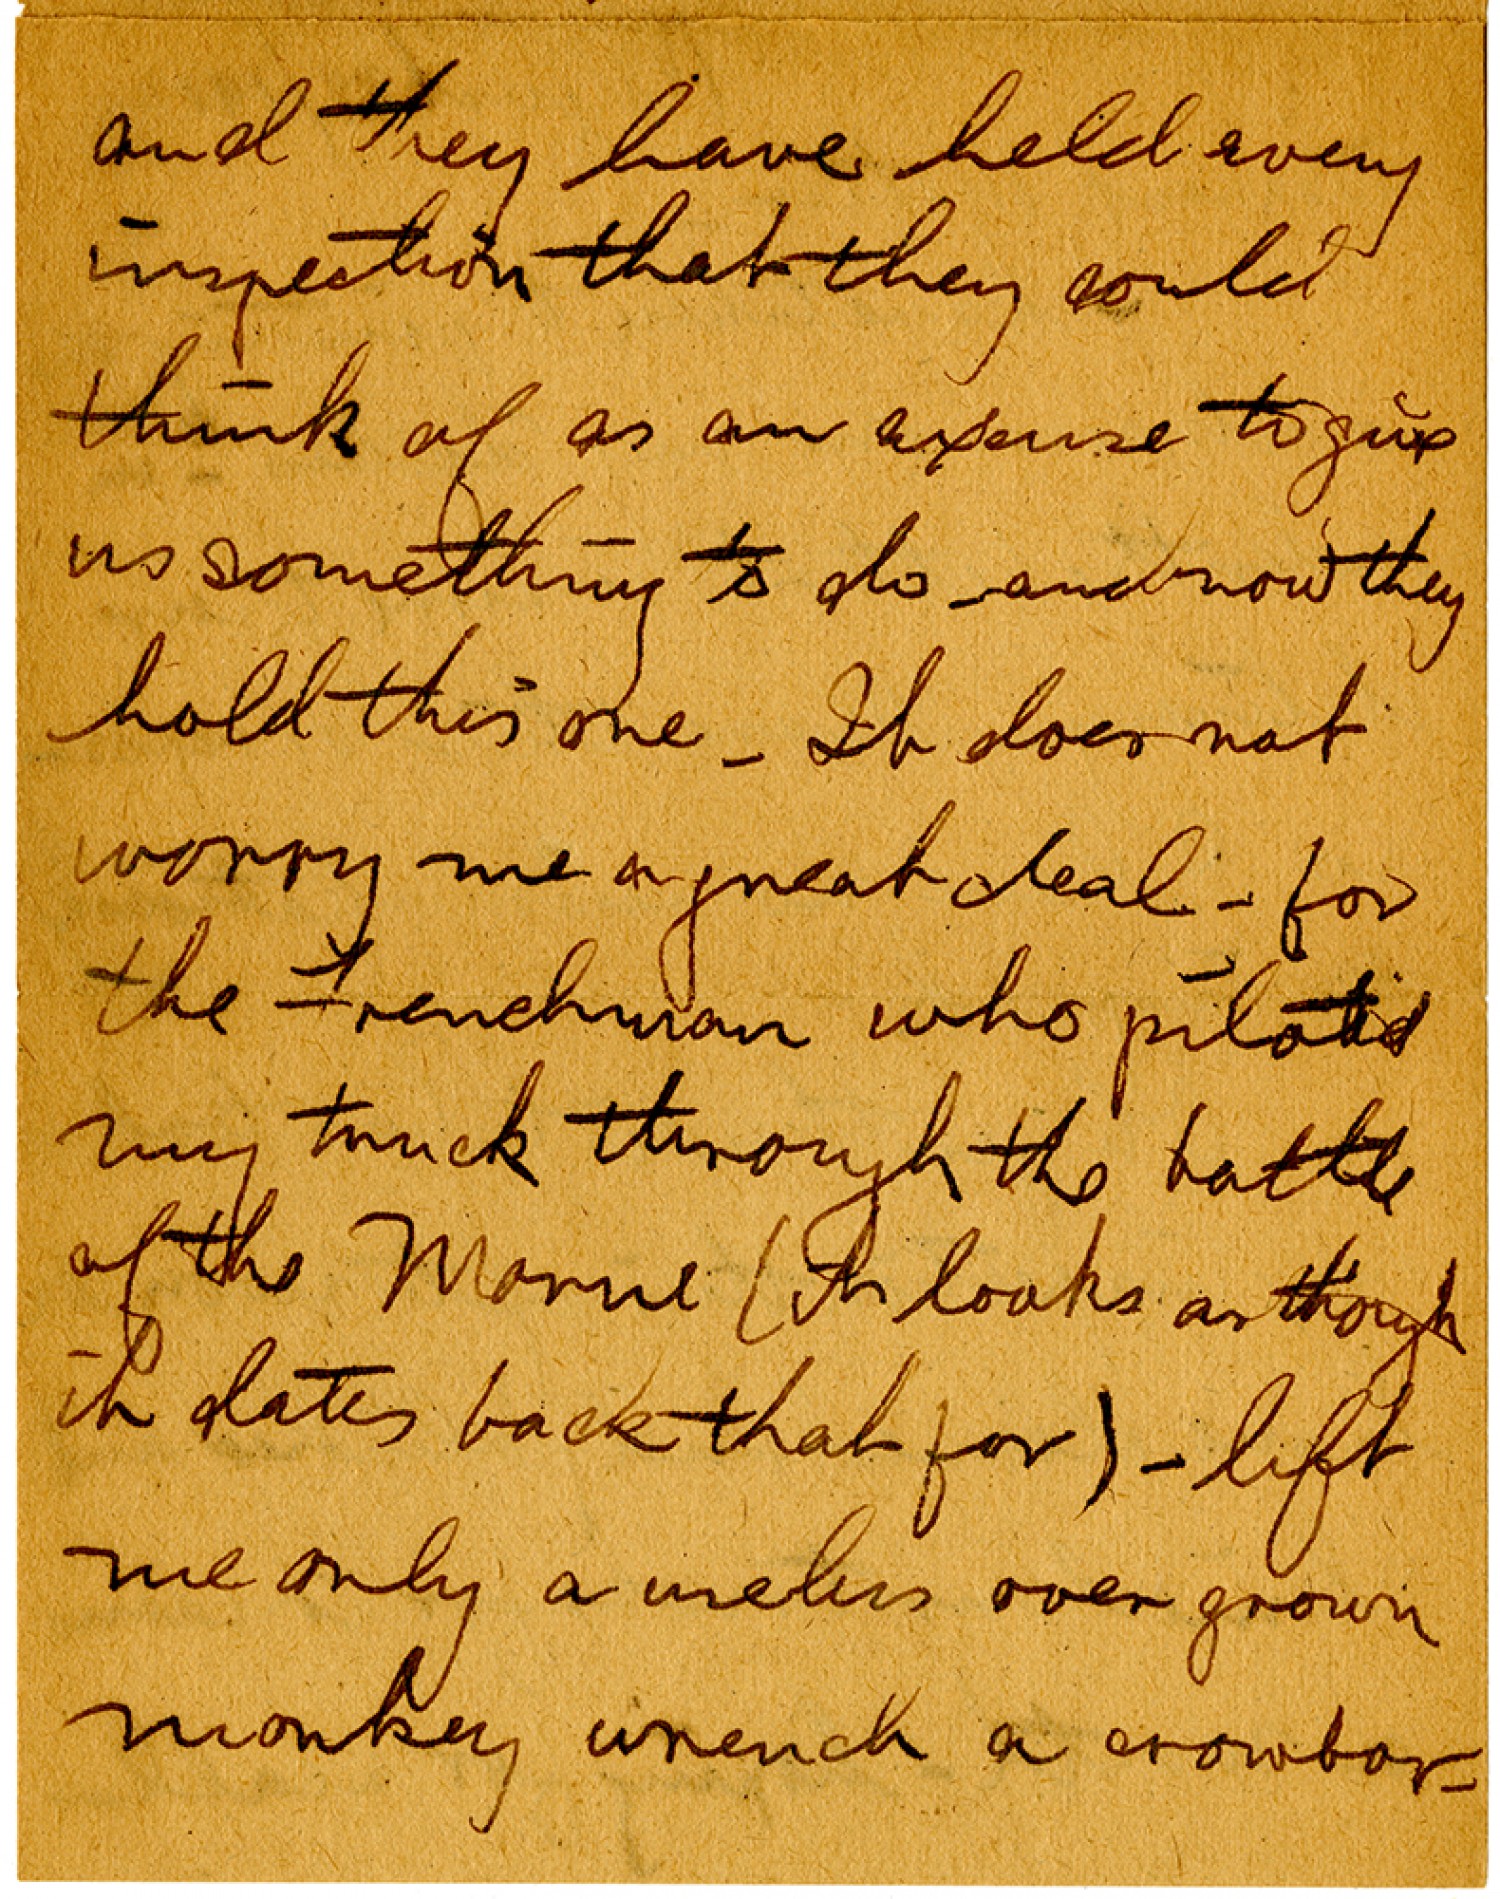 and they have held every
inspection that they could
think of as an excuse to give
us something to do - and now they
hold this one - It does not
worry me a great deal - for
the Frenchman who piloted
my truck through the battle
of the Marne (It looks as though
it dates back that far) - left
me only a useless over grown
monkey wrench a crowbar -